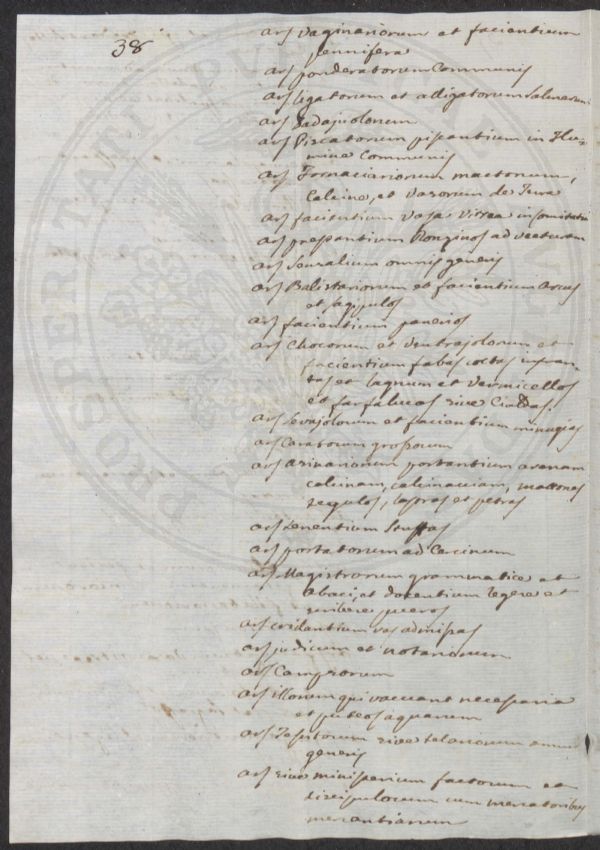 38
ars vaginariorum et facientium
pennifera
ars ponderatorum Communis
ars ligatorum et alligatorum Salmarum
ars
ars Piscatorum piscantium in Flu-
mine Communis
ars Fornaciariorum mactonum,
Calcina, et vasorum de Terra
ars facientium vasa vitrea
ars prestantium Ronzinos ad vecturam
ars Sensalium omnis generis
ars Balistariorum et facientium Arcus
et
ars facientium panerios
ars Chocorum et ventrajolorum et
facientium fabas coctas infran-
tas et lagnum et vermicellos
et farfalucas sive Cialdas.
ars Sevajolorum et facientium minugias
ars Caratorum grossorum
ars arinariorum portantium arenam
calcinam, calcinacciam, mattonos
tegulos, lastras et petras
ars tenentium Stuffas
ars portatorum ad Carcinum
ars Magistrorum grammatice et
abaci, et docentium legere et
scribere, pueros
ars cridantium res admissas
ars judicum et notariorum
ars Campsorum
ars illorum qui vacuant necessaria
et puteos aquarum
ars Testitorum sive telariorum omnis
generis
ars sive ministerium factorum et
discipulorum cum mercatoribus
mercantiarum